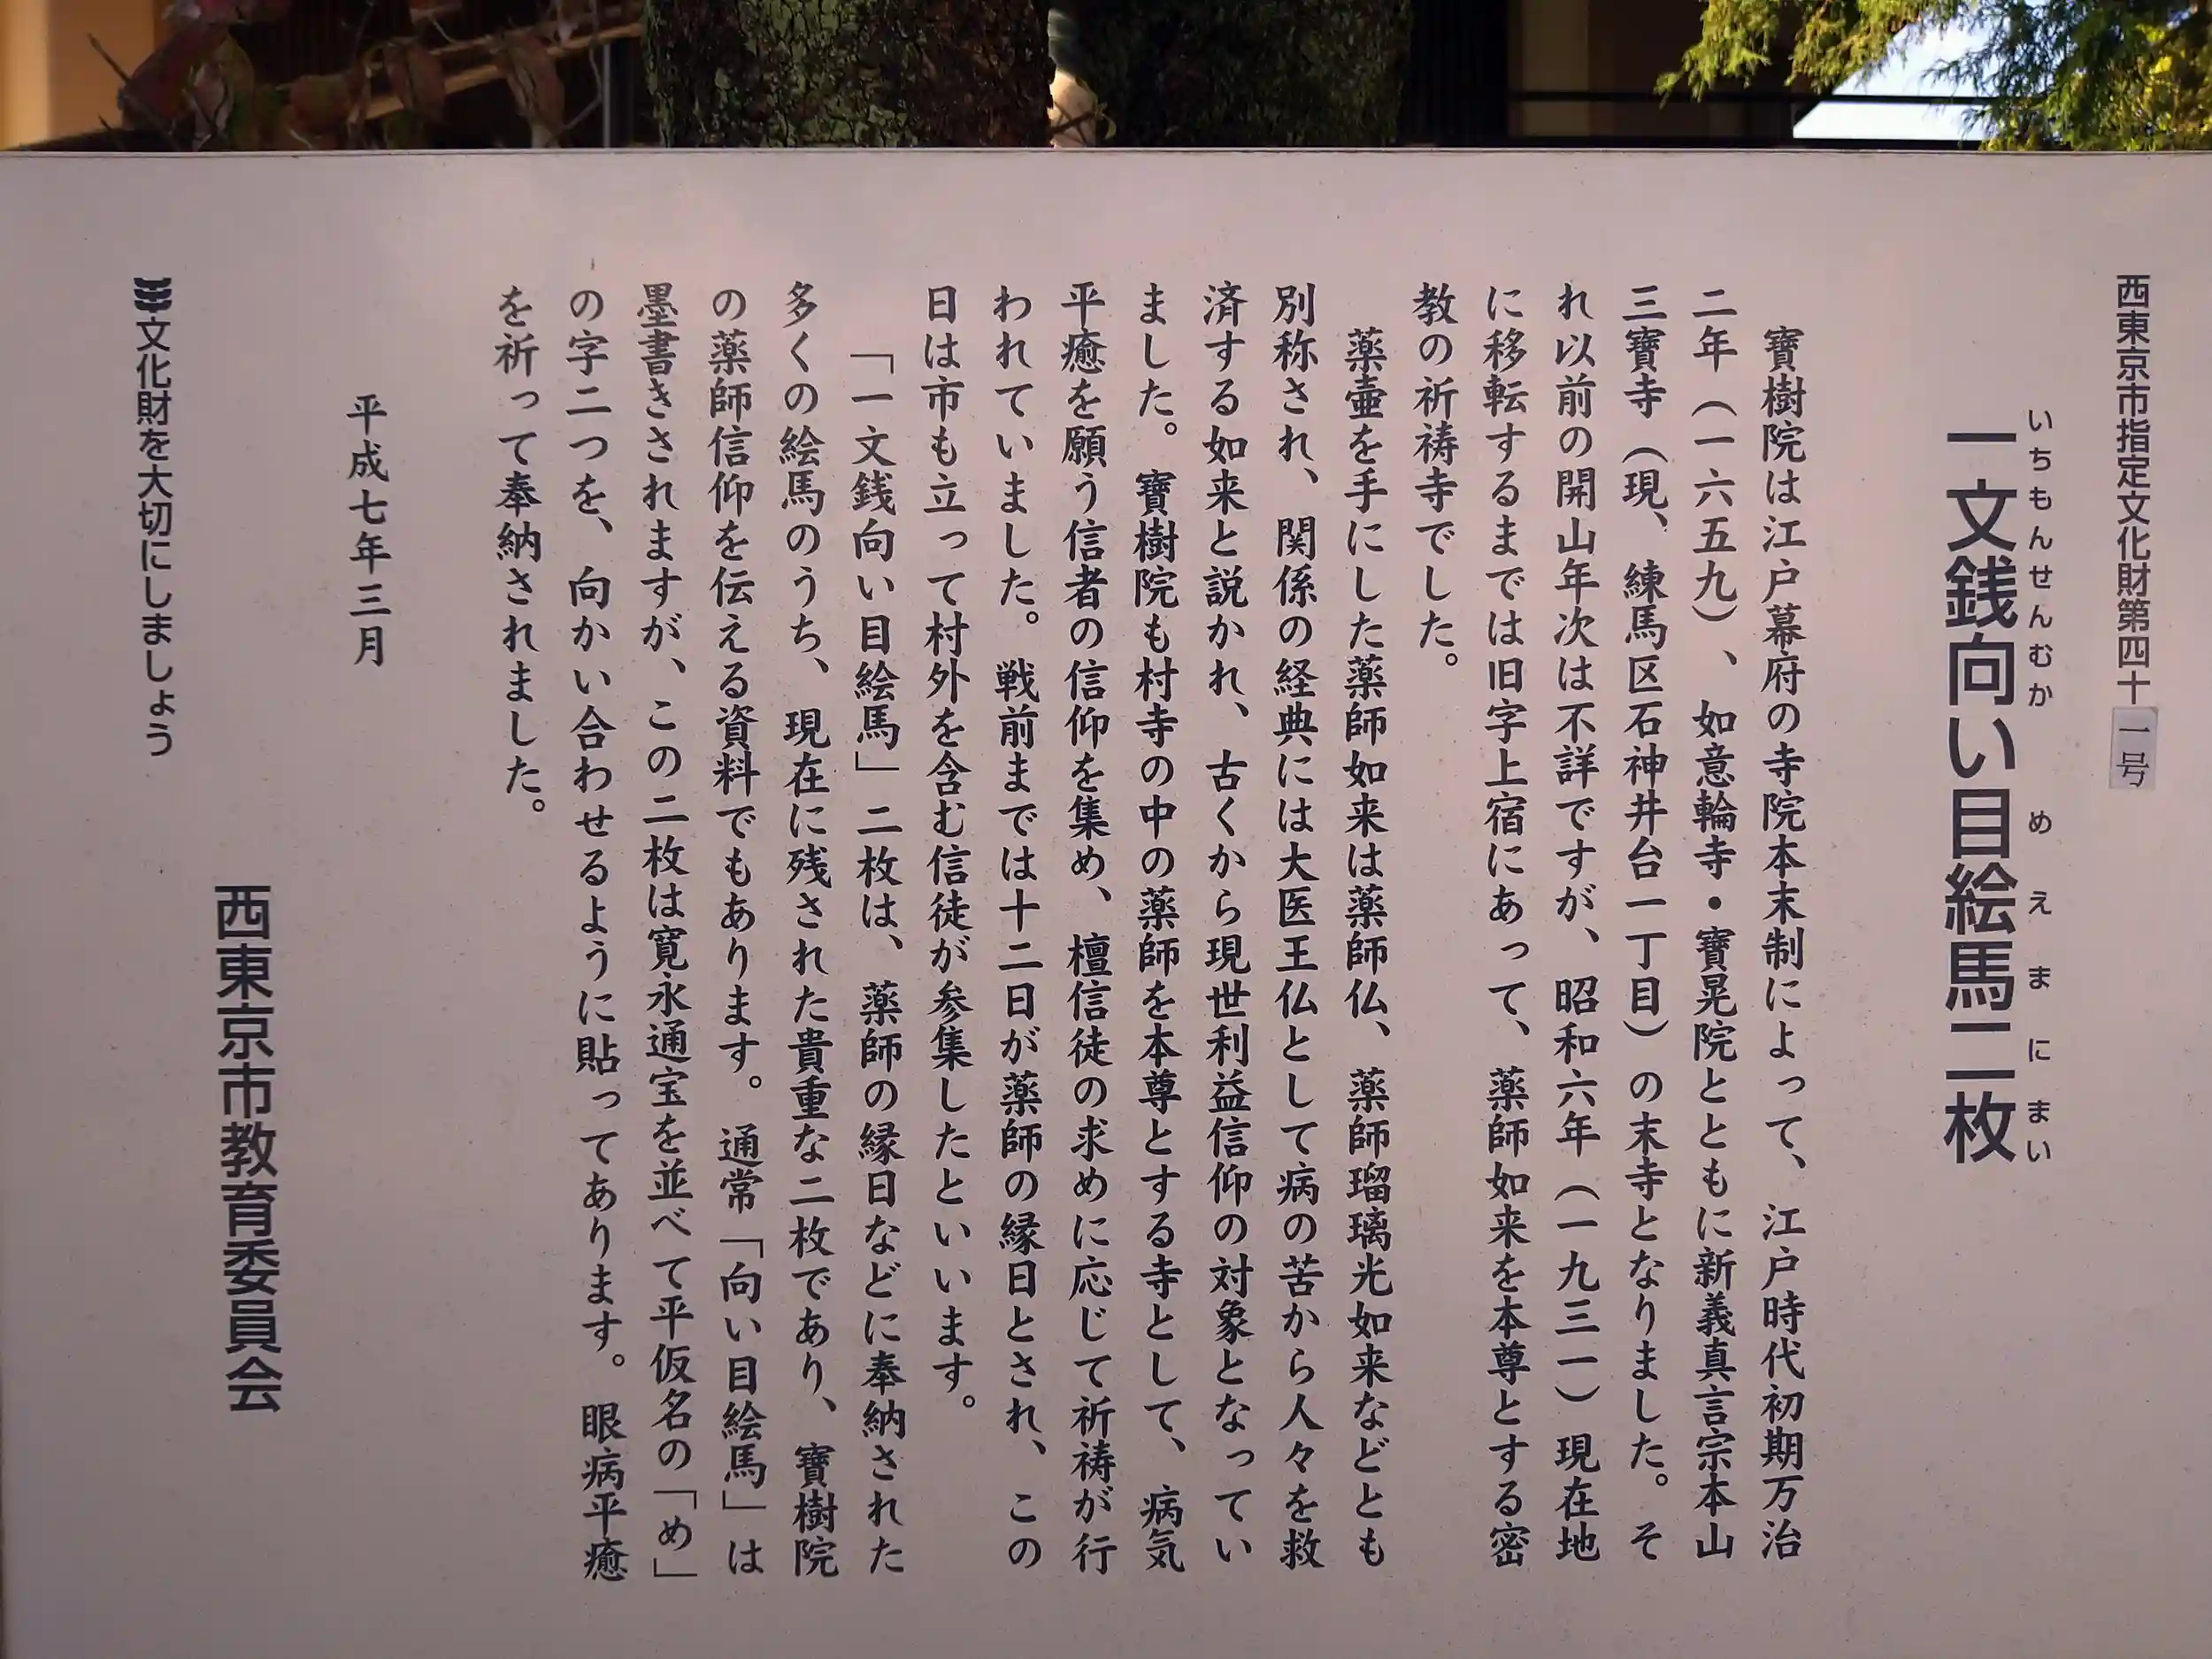 西東京市指定文化財第四十一号
いちもんせんむか めえまにまい
一文銭向い目絵馬二枚
寶樹院は江戸幕府の寺院本末制によって、江戸時代初期万治
二年（一六五九）、如意輪寺・寶晃院とともに新義真言宗本山
三寶寺（現、練馬区石神井台一丁目）の末寺となりました。そ
れ以前の開山年次は不詳ですが、昭和六年（一九三一）現在地
に移転するまでは旧字上宿にあって、薬師如来を本尊とする密
教の祈祷寺でした。
薬壷を手にした薬師如来は薬師仏、薬師瑠璃光如来などとも
別称され、関係の経典には大医王仏として病の苦から人々を救
済する如来と説かれ、古くから現世利益信仰の対象となってい
ました。寶樹院も村寺の中の薬師を本尊とする寺として、病気
平癒を願う信者の信仰を集め、檀信徒の求めに応じて祈祷が行
われていました。戦前までは十二日が薬師の縁日とされ、この
日は市も立って村外を含む信徒が参集したといいます。
「一文銭向い目絵馬」二枚は、薬師の縁日などに奉納された
多くの絵馬のうち、現在に残された貴重な二枚であり、寶樹院
の薬師信仰を伝える資料でもあります。通常「向い目絵馬」は
墨書きされますが、この二枚は寛永通宝を並べて平仮名の「め」
の字二つを、向かい合わせるように貼ってあります。眼病平癒
を祈って奉納されました。
平成七年三月
西東京市教育委員会
文化財を大切にしましょう